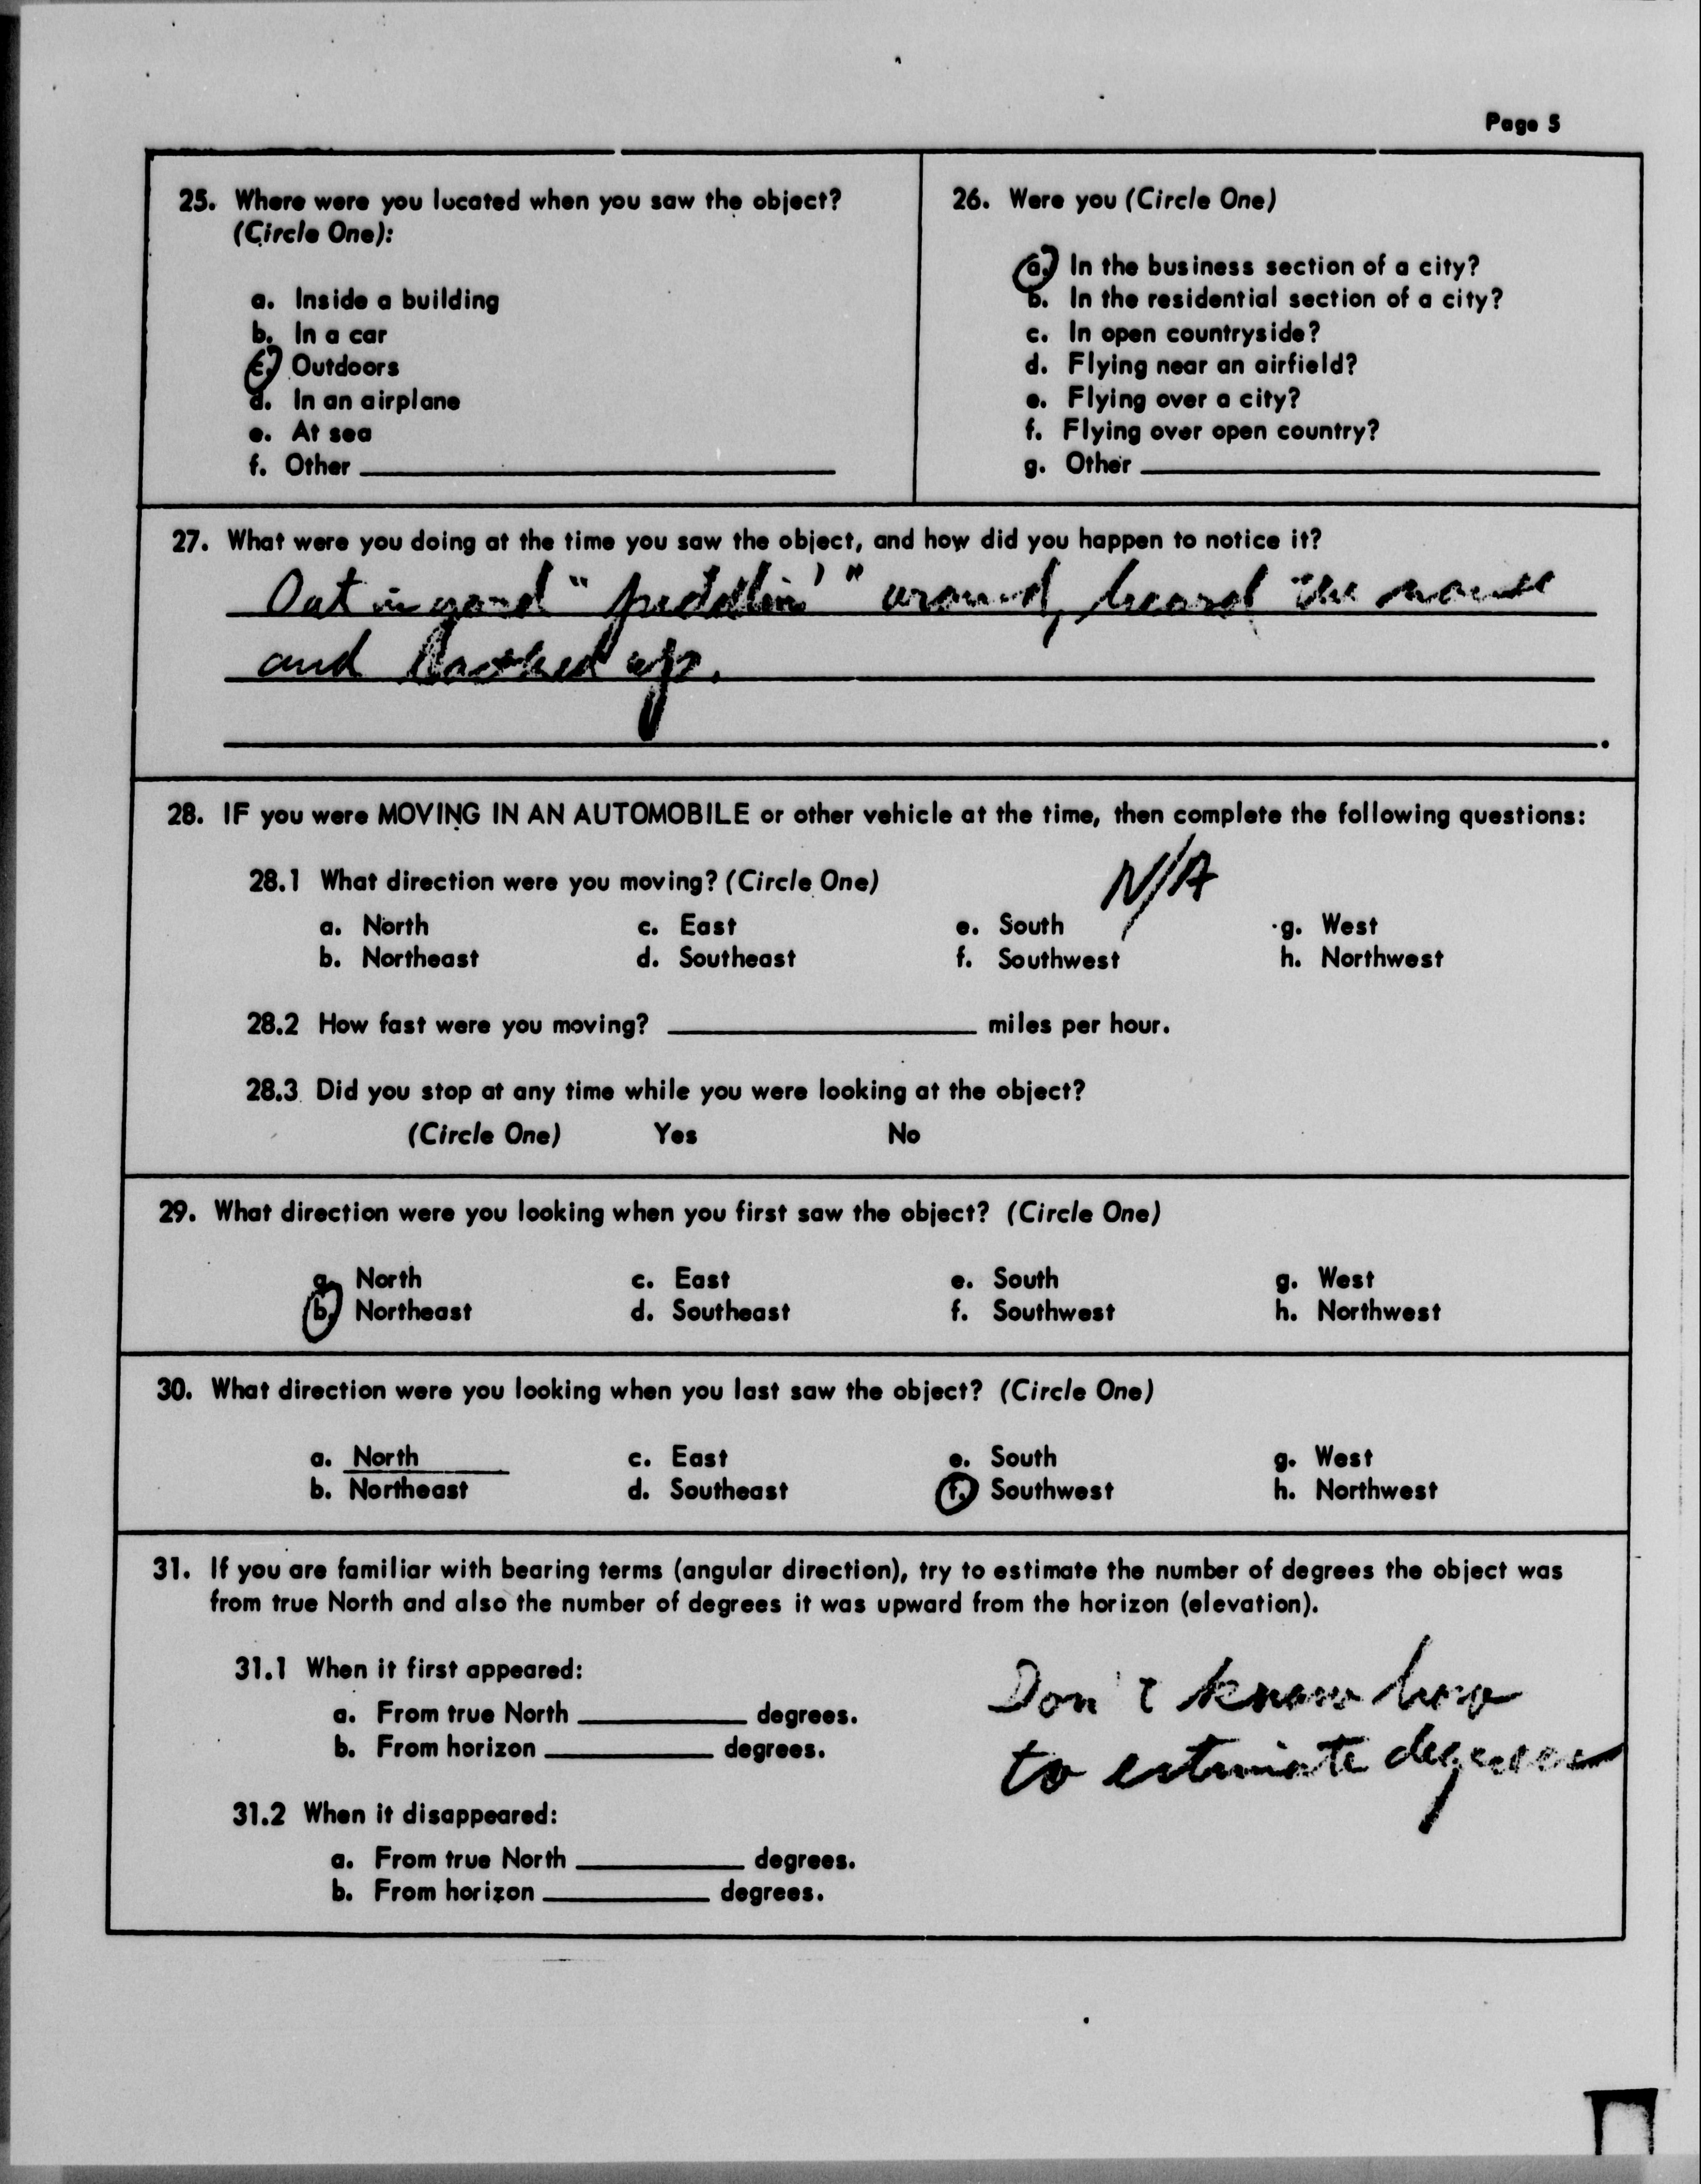 Page 5
25. Where were you located when you saw the object?
(Circle One):
a. Inside a building
b. In a car
c. Outdoors
d. In an airplane
e. At sea
f. Other
26. Were you (Circle One)
a. In the business section of a city?
b. In the residential section of a city?
c. In open countryside?
d. Flying near an airfield?
e. Flying over a city?
f. Flying over open country?
g. Other
27. What were you doing at the time you saw the object, and how did you happen to notice it?
Out in yard "piddlin'" around, heard the
and looked up.
28. IF you were MOVING IN AN AUTOMOBILE or other vehicle at the time, then complete the following questions:
N/A
28.1 What direction were you moving? (Circle One)
a. North c. East e. South g. West
b. Northeast d. Southeast f. Southwest h. Northwest
28.2 How fast were you moving? miles per hour.
28.3 Did you stop at any time while you were looking at the object?
(Circle One) Yes No
29. What direction were you looking when you first saw the object? (Circle One)
a. North c. East e. South g. West
b. Northeast d. Southeast f. Southwest h. Northwest
30. What direction were you looking when you last saw the object? (Circle One)
a. North c. East e. South g. West
b. Northeast d. Southeast f. Southwest h. Northwest
31. If you are familiar with bearing terms (angular direction), try to estimate the number of degrees the object was
from true North and also the number of degrees it was upward from the horizon (elevation).
31.1 When it first appeared:
a. From true North degrees.
b. From horizon degrees.
Don't know how
to estimate degrees
31.2 When it disappeared:
a. From true North degrees.
b. From horizon degrees.